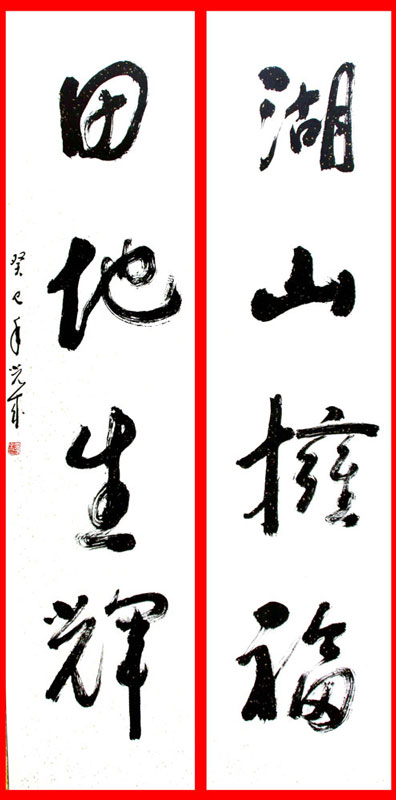 湖山擁福
田地生輝
癸巳年光成